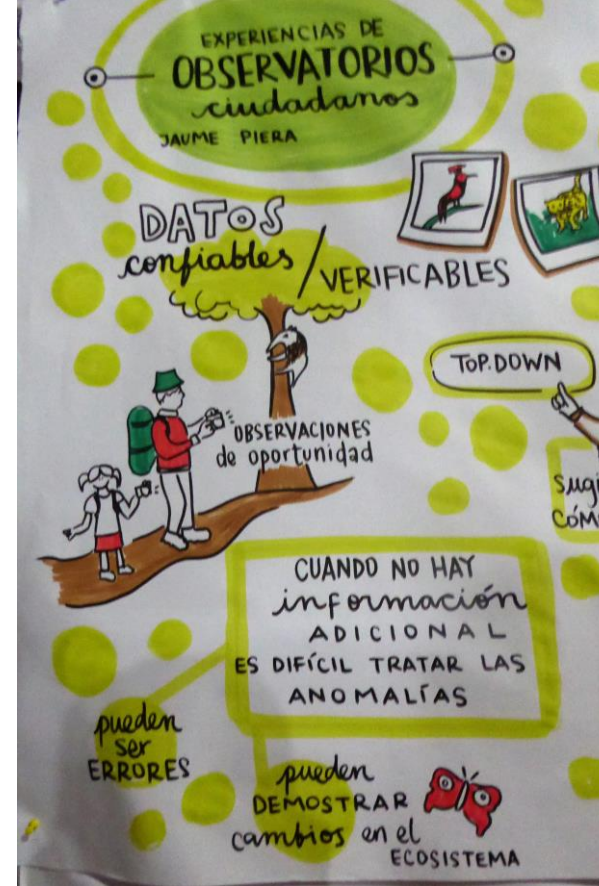 EXPERIENCIAS DE
OBSERVATORIOS
ciudadanos
JAUME PIERA
DATOS
confiables / VERIFICABLES
TOP.DOWN
OBSERVACIONES
de oportunidad
CUANDO NO HAY
información
ADICIONAL
ES DIFÍCIL TRATAR LAS
ANOMALÍAS
pueden
ser
ERRORES
pueden
DEMOSTRAR
cambios en el
ECOSISTEMA